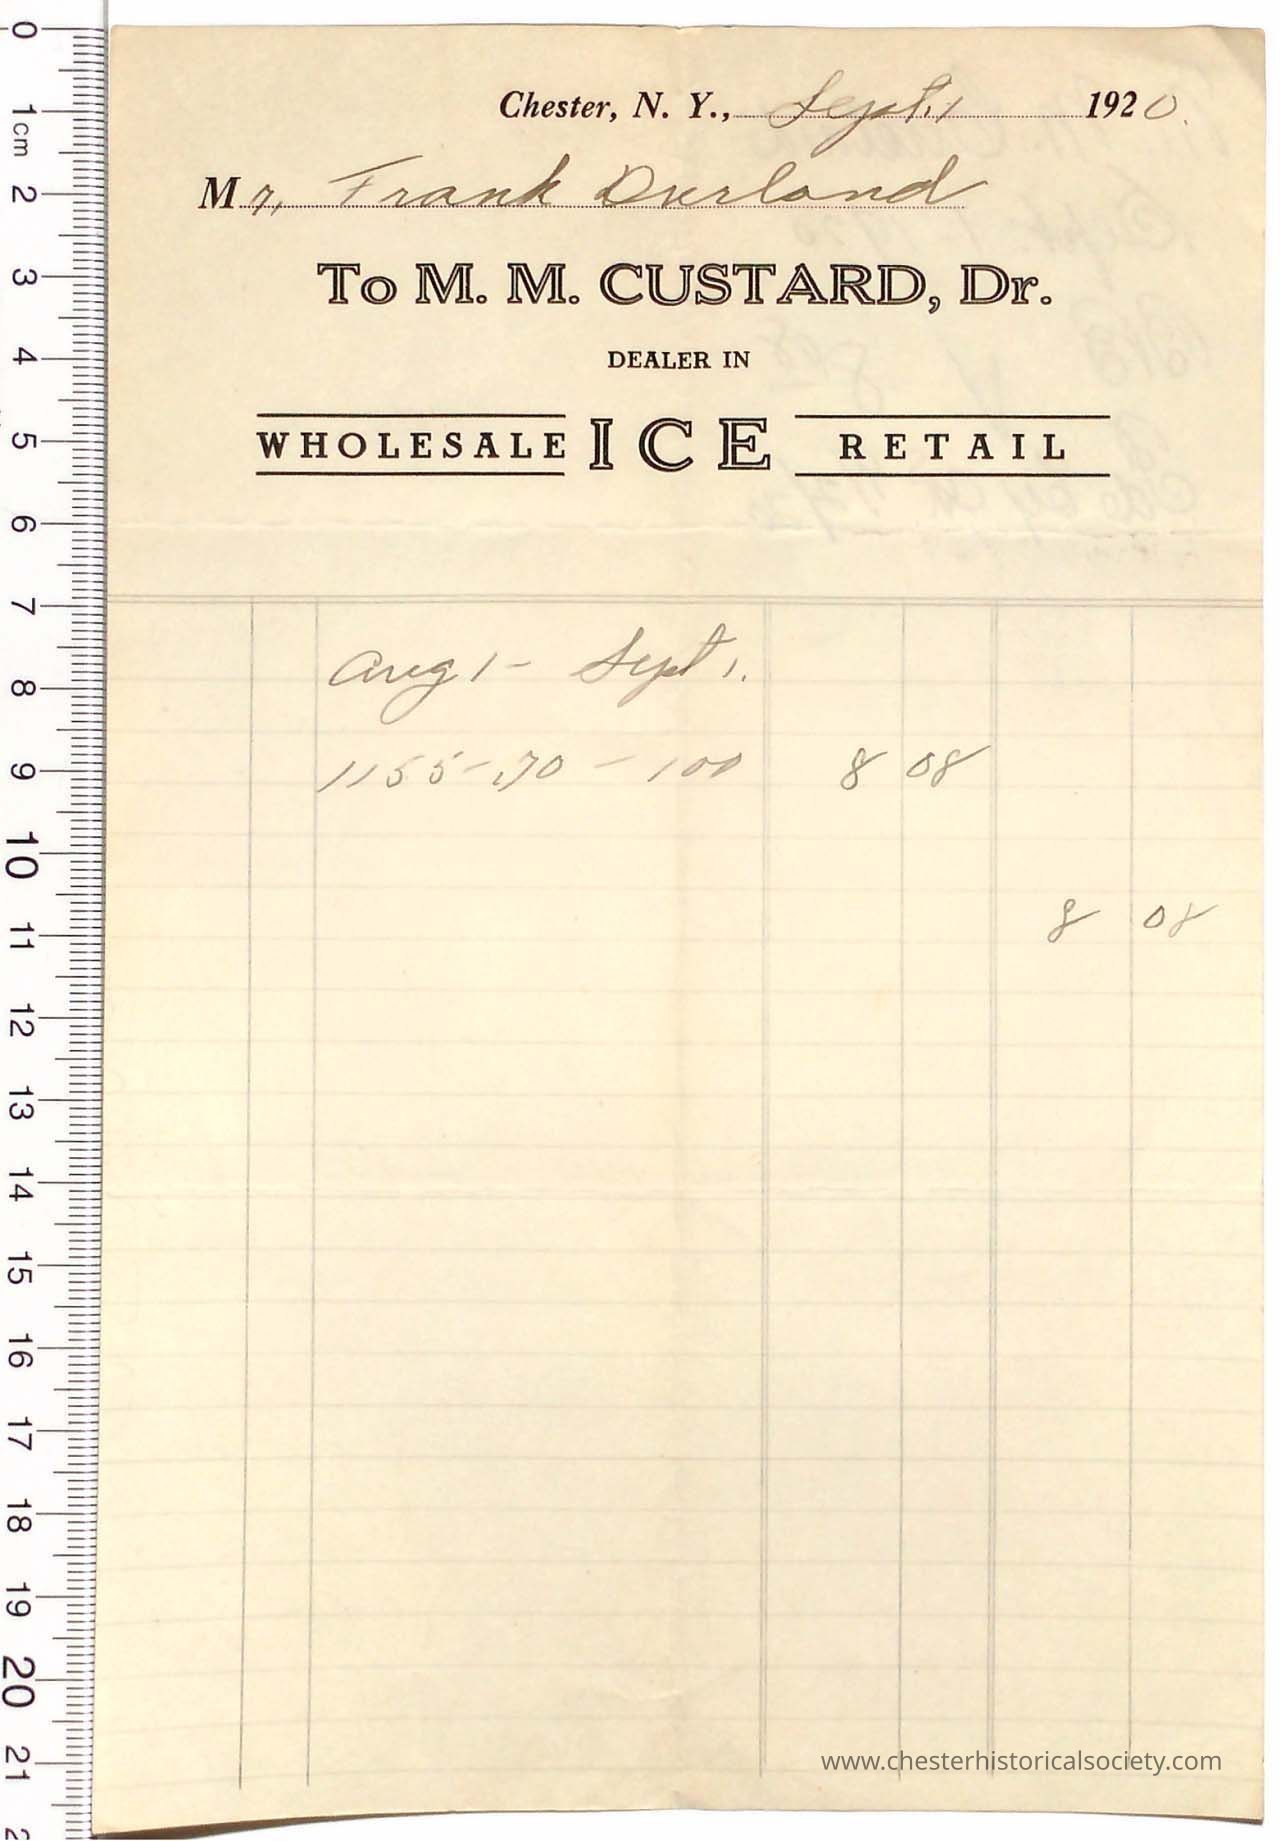 Chester, N. Y., Sept. 1 1920.
Mr. Frank Durland
To M. M. CUSTARD, Dr.
DEALER IN
WHOLESALE ICE RETAIL
Aug 1 - Sept 1.
1155 - .70 - 100 8 08
8 08
www.chesterhistoricalsociety.com
0
1cm
2
3
4
5
6
7
8
9
10
11
12
13
14
15
16
17
18
19
20
21